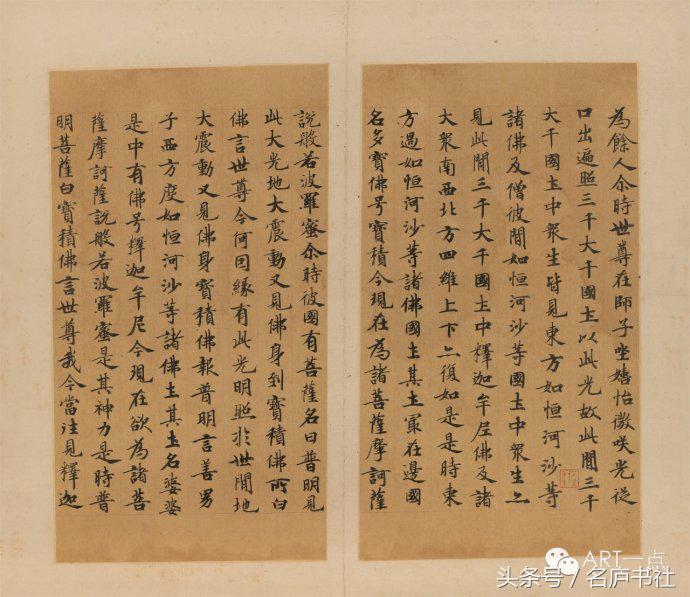 為餘人尒時世尊在師子坐嬉怡微咲光從
口出遍照三千大千國土以此光故此閒三千
大千國土中衆生皆見東方如恒河沙等
諸佛及僧彼閒如恒河沙等國土中衆生亦
見此閒三千大千國土中釋迦牟尼佛及諸
大衆南西北方四維上下亦復如是是時東
方過如恒河沙等諸佛國土其土最在邊國
名多寶佛号寶積今現在為諸菩薩摩訶薩
說般若波羅蜜尒時彼國有菩薩名曰普明見
此大光地大震動又見佛身到寶積佛所白
佛言世尊今何因緣有此光明照於世閒地
大震動又見佛身寶積佛報普明言善男
子西方度如恒河沙等諸佛土其土名娑婆
是中有佛号釋迦牟尼今現在欲為諸菩
薩摩訶薩說般若波羅蜜是其神力是時普
明菩薩白寶積佛言世尊我今當往見釋迦
ART一点
头条号 / 名庐书社